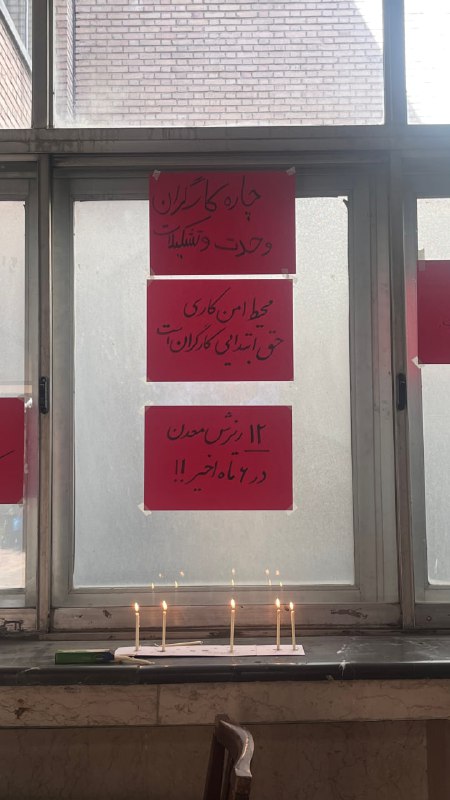 چاره کارگران
وحدت و تشکیلات
محیط امن کاری
حق ابتدایی کارگران است
۱۲ ریزش معدن
در ۶ ماه اخیر!!